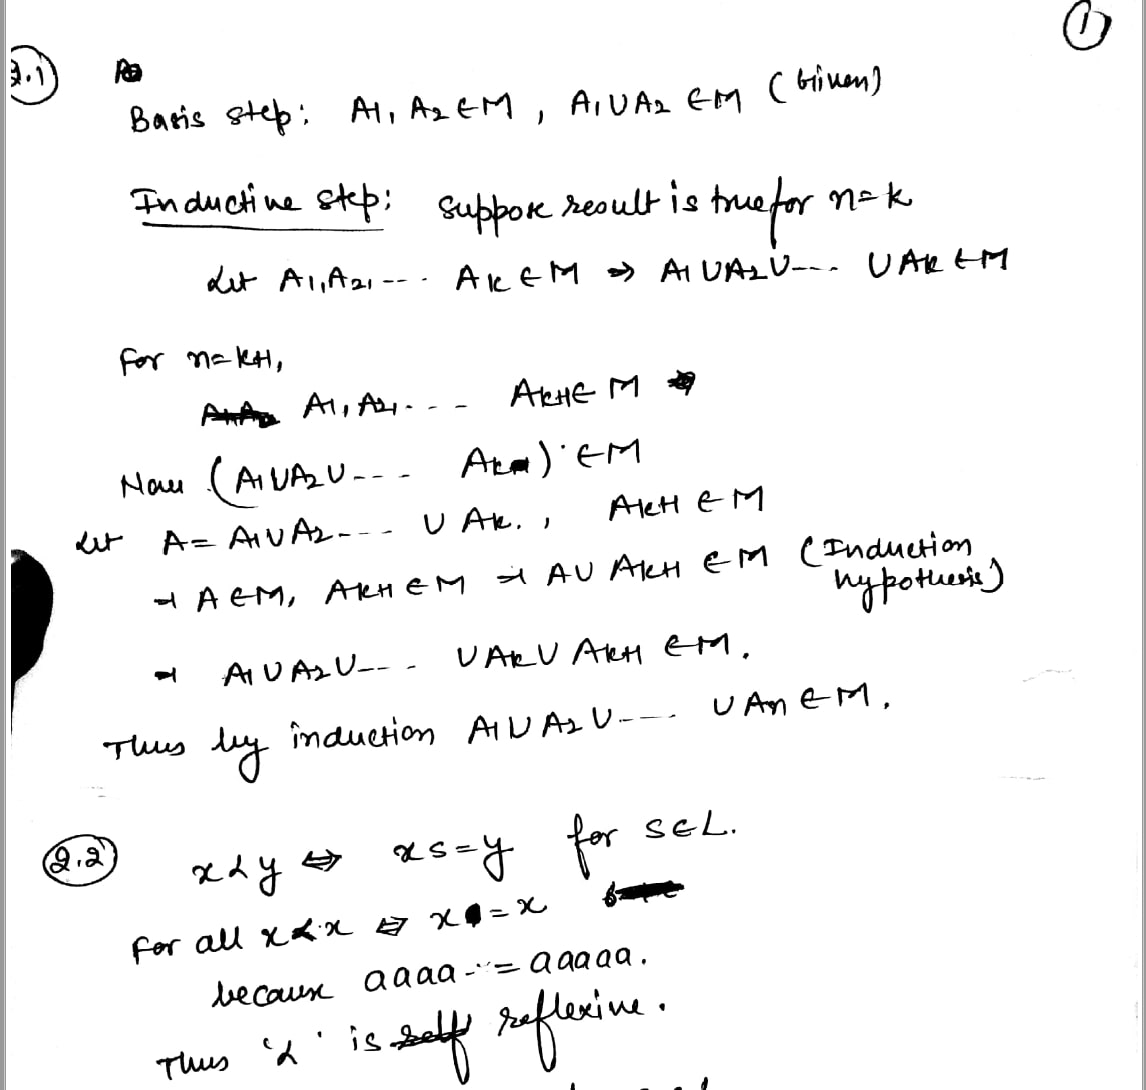 ①
2.1)
Basis step: A1, A2 ∈ M, A1 ∪ A2 ∈ M (Given)
Inductive step: Suppose result is true for n=k
Let A1, A2, --- . Ak ∈ M ⇒ A1 ∪ A2 ∪ --- . ∪ Ak ∈ M
For n=k+1,
A1, A2, . - - Ak+1 ∈ M
Now (A1 ∪ A2 ∪ - - - ) ∈ M
Let A = A1 ∪ A2 - - - ∪ Ak . , Ak+1 ∈ M
⇒ A ∈ M, Ak+1 ∈ M ⇒ A ∪ Ak+1 ∈ M (Induction
hypothesis)
⇒ A1 ∪ A2 ∪ -- - ∪ Ak ∪ Ak+1 ∈ M.
Thus by induction A1 ∪ A2 ∪ --- . ∪ An ∈ M.
2.2) x≺y ⇔ xs=y for s∈L.
For all x≺x ⇔ x =x
because aaaa -- = aaaaa.
Thus '≺' is reflexive.